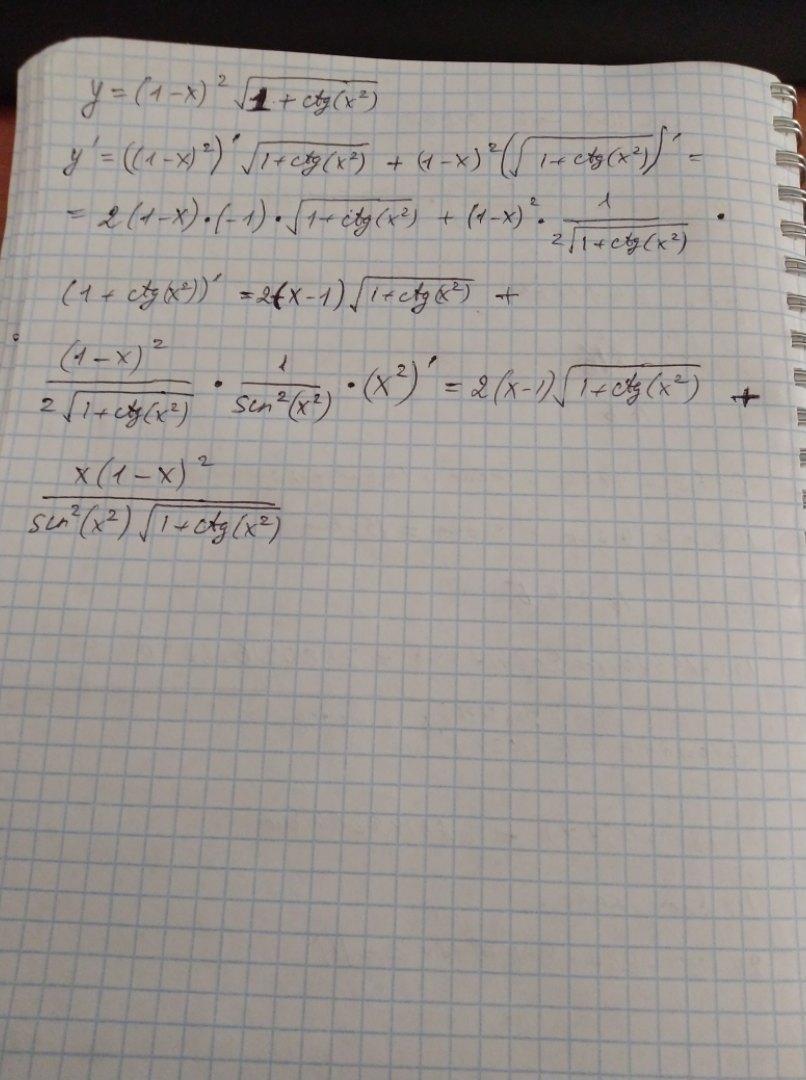 y = (1-x)² √(1 + ctg(x²))
y' = ((1-x)²)' √(1+ctg(x²)) + (1-x)² (√(1+ctg(x²)))' =
= 2(1-x)·(-1)·√(1+ctg(x²)) + (1-x)² · 1/(2√(1+ctg(x²))) ·
(1 + ctg(x²))' = 2(x-1) √(1+ctg(x²)) +
(1-x)²/(2√(1+ctg(x²))) · 1/(sin²(x²)) · (x²)' = 2(x-1)√(1+ctg(x²)) +
x(1-x)²/(sin²(x²) √(1+ctg(x²)))